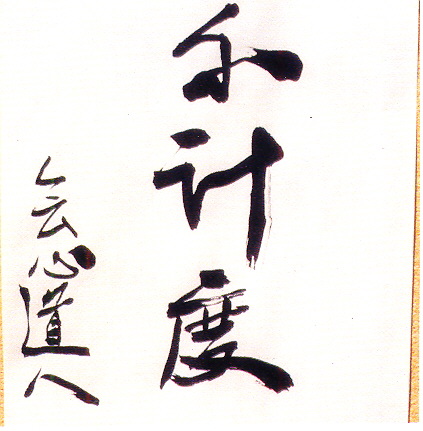 不計度
会心道人